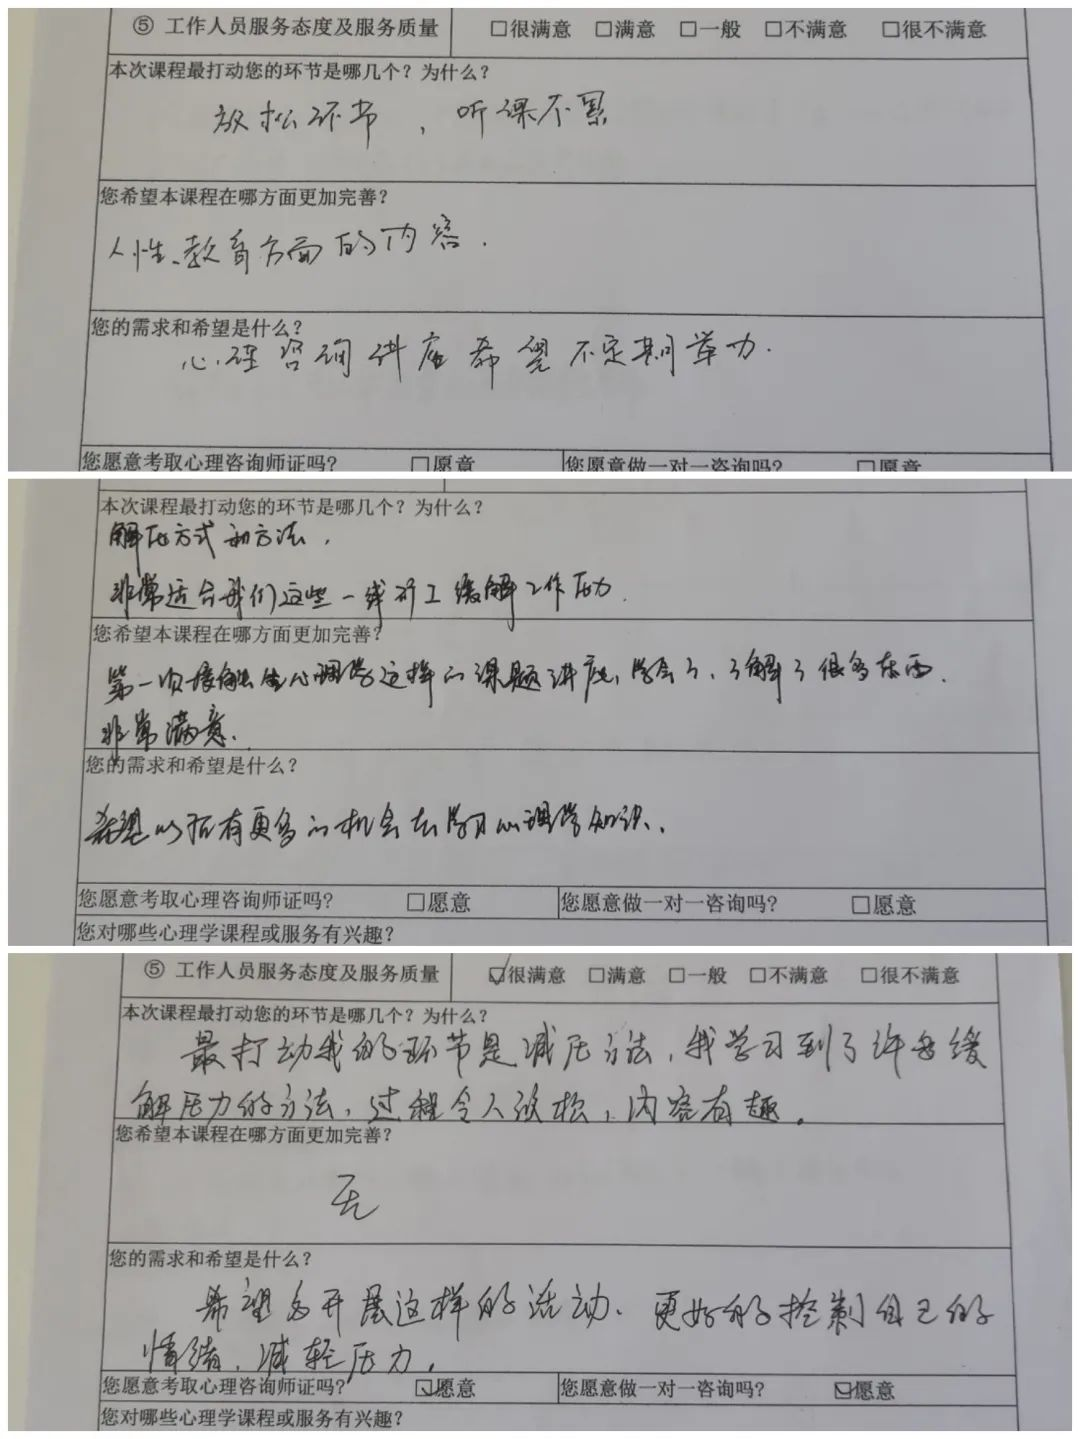 ⑤ 工作人员服务态度及服务质量 □很满意 □满意 □一般 □不满意 □很不满意
本次课程最打动您的环节是哪几个？为什么？
放松环节，听课不累
您希望本课程在哪方面更加完善？
人性、教育方面的内容.
您的需求和希望是什么？
心理咨询讲座希望不定期举办.
您愿意考取心理咨询师证吗？ □愿意 您愿意做一对一咨询吗？ □愿意
本次课程最打动您的环节是哪几个？为什么？
解压方式和方法，
非常适合我们这些一线矿工缓解工作压力.
您希望本课程在哪方面更加完善？
第一次接触心理学这样的课题讲座，学会了、了解了很多东西.
非常满意.
您的需求和希望是什么？
希望以后有更多的机会去学习心理学知识.
您愿意考取心理咨询师证吗？ □愿意 您愿意做一对一咨询吗？ □愿意
您对哪些心理学课程或服务有兴趣？
⑤ 工作人员服务态度及服务质量 ☑很满意 □满意 □一般 □不满意 □很不满意
本次课程最打动您的环节是哪几个？为什么？
最打动我的环节是减压方法，我学习到了许多缓
解压力的方法，过程令人放松，内容有趣。
您希望本课程在哪方面更加完善？
无
您的需求和希望是什么？
希望多开展这样的活动.更好的控制自己的
情绪，减轻压力.
您愿意考取心理咨询师证吗？ ☑愿意 您愿意做一对一咨询吗？ ☑愿意
您对哪些心理学课程或服务有兴趣？